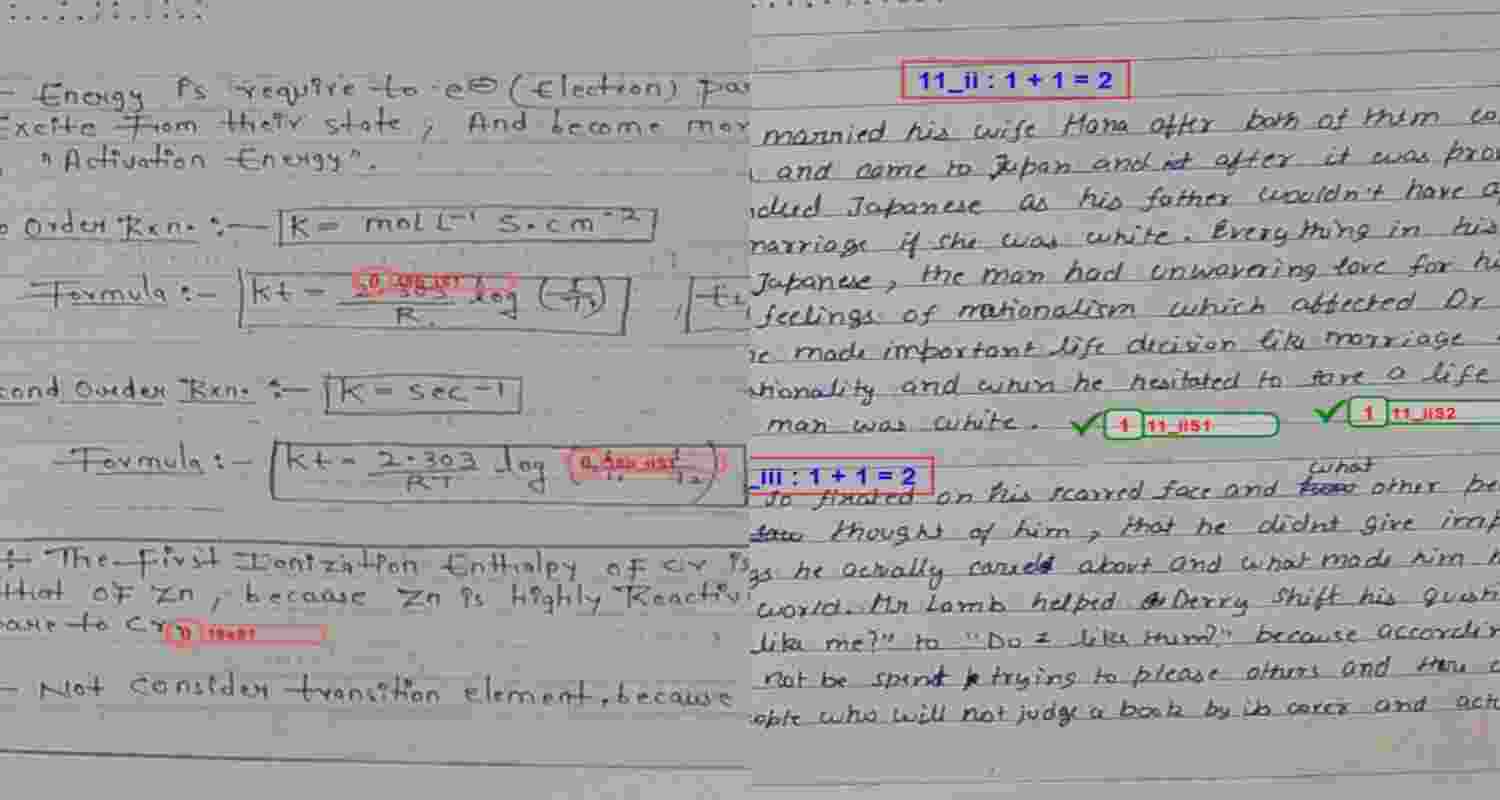 - Energy is require to e⊖ (Election) par
Excite From their state, And become mor
"Activation Energy".
o Order Rxn. :— K = mol L⁻¹ S.cm⁻²
Formula :- kt = log
R.
cond Order Rxn. :— K = sec⁻¹
Formula :- kt - 2.303 log
RT
:- The First Ionization Enthalpy of Cr is
that of Zn, because Zn is Highly Reactiv
pare to Cr
0 19aS1
- Not Consider transition element, because
11_ii : 1 + 1 = 2
married his wife Hana after both of them co
and came to Japan and after it was prov
Japanese as his father wouldn't have a
marriage if she was white. Every thing in his
Japanese, the man had unwavering love for hi
feelings of nationalism which affected Dr
he made important life decision like marriage
ationality and when he hesitated to save a life
man was white.
1 11_iiS1
1 11_iiS2
_iii : 1 + 1 = 2
what
So fixated on his scarred face and other pe
thought of him, that he didnt give imp
gs he actually cared about and what made him h
world. Mr Lamb helped Derry shift his questi
like me?" to "Do I like them?" because accordin
not be spent trying to please others and
ople who will not judge a book by its cover and actu